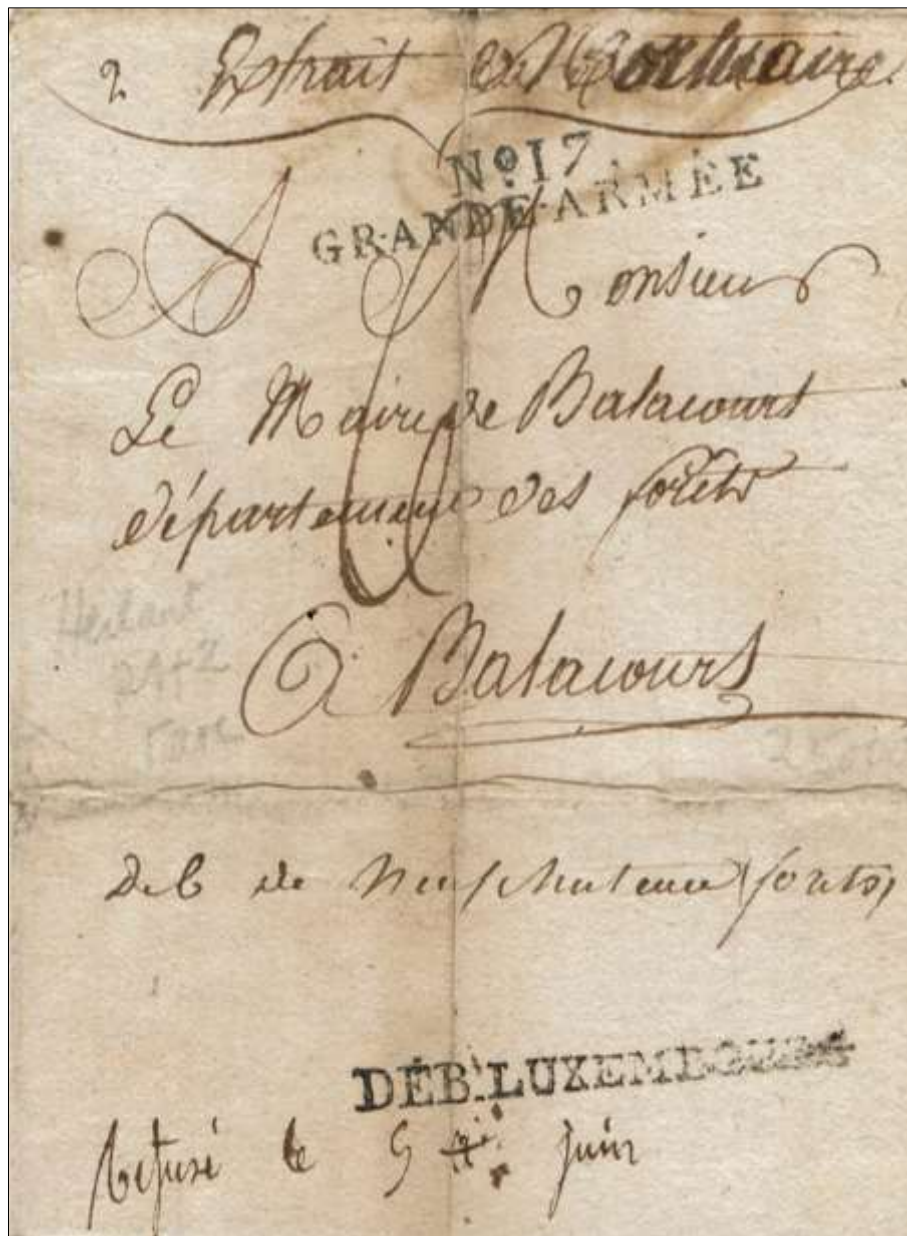 2 Extrait Mortuaire
Nº 17.
GRANDE-ARMÉE
A Monsieur
6
Le Maire de Balacourt
département des forêts
Herlant
à Balacourt
Deb de Neufchateau (forets)
DÉB. LUXEMBOURG
Refusé le 5 juin